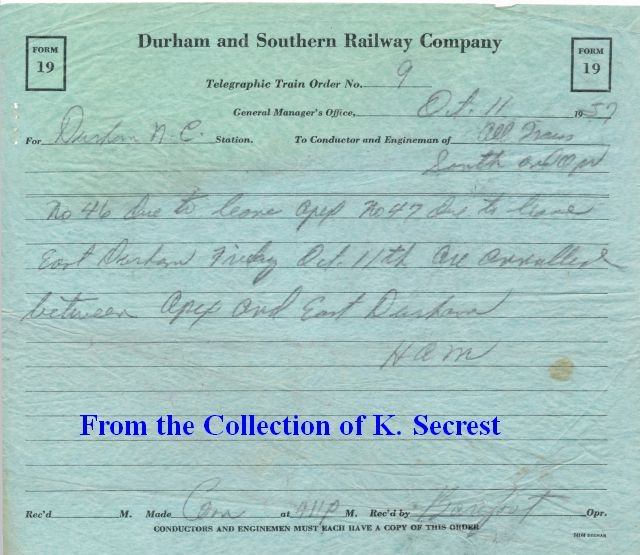 FORM 19
Durham and Southern Railway Company
FORM 19
Telegraphic Train Order No. 9
General Manager's Office, Oct. 11 1957
For Durham N.C. Station. To Conductor and Engineman of All Trains
South and Opr
No 46 due to leave Apex No 47 due to leave
East Durham Friday Oct. 11th are annulled
between Apex and East Durham
H A M
From the Collection of K. Secrest
Rec'd M. Made Com at M. Rec'd by Barefoot Opr.
CONDUCTORS AND ENGINEMEN MUST EACH HAVE A COPY OF THIS ORDER